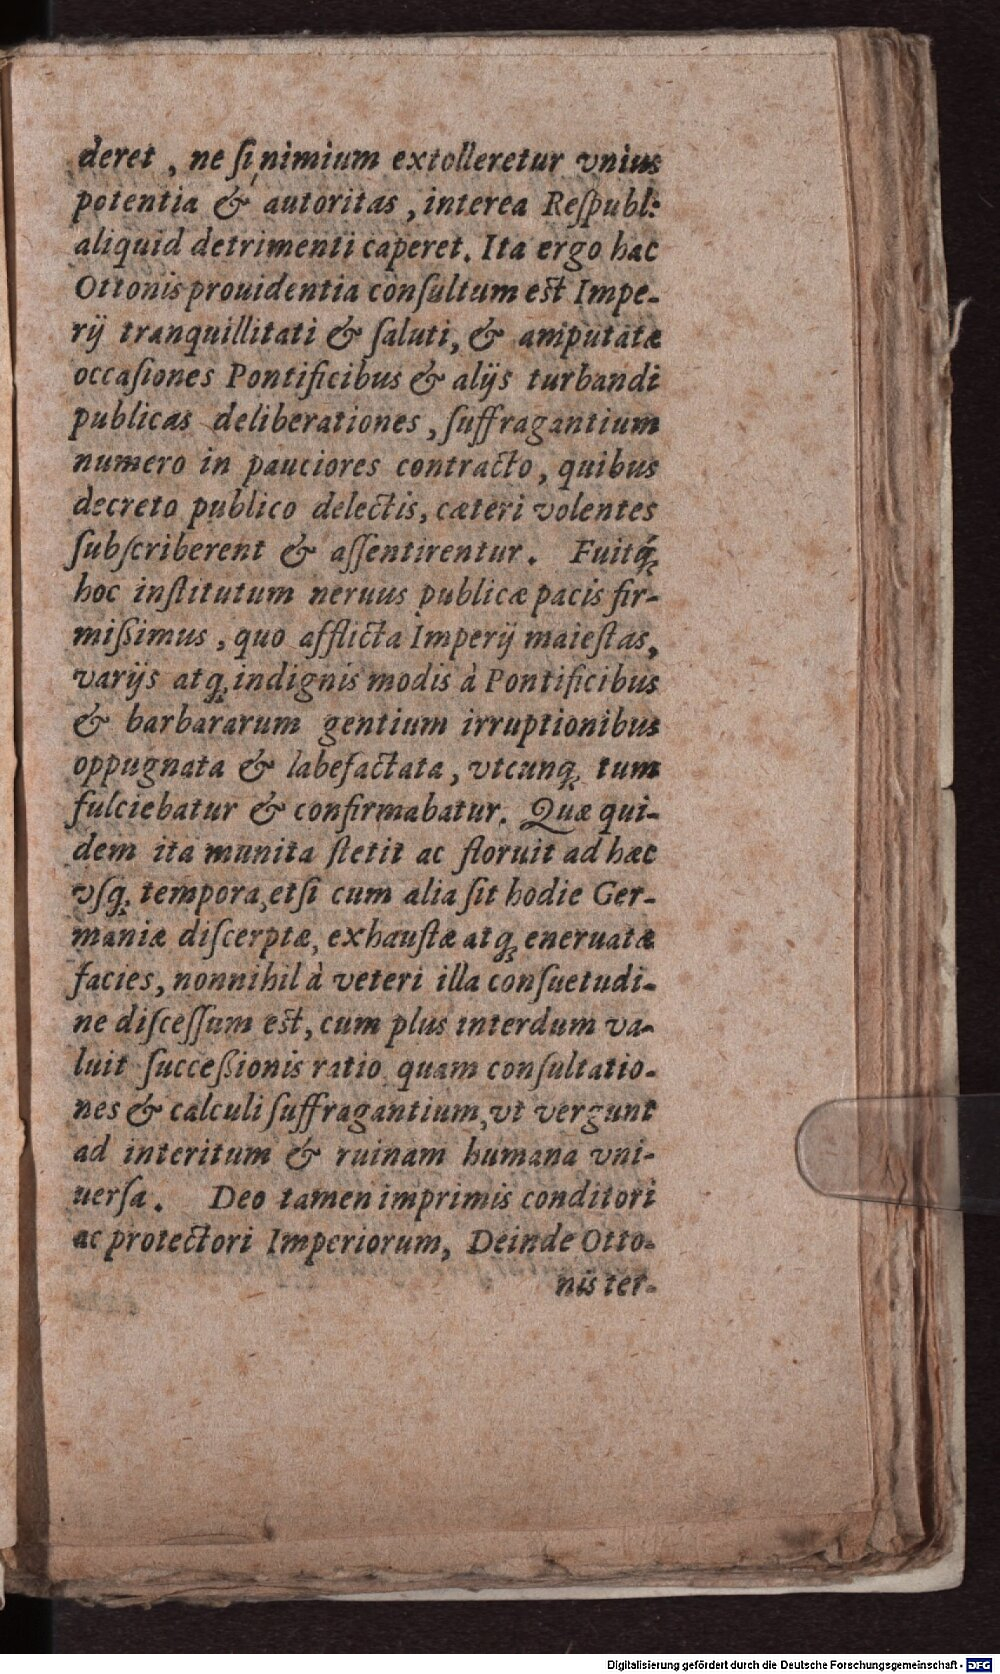 deret, ne ſi nimium extolleretur vnius
potentia & autoritas, interea Reſpubl:
aliquid detrimenti caperet. Ita ergo hac
Ottonis prouidentia conſultum eſt Impe-
rij tranquillitati & ſaluti, & amputatæ
occaſiones Pontificibus & alijs turbandi
publicas deliberationes, ſuffragantium
numero in pauciores contracto, quibus
decreto publico delectis, cæteri volentes
ſubſcriberent & aſſentirentur. Fuitq́;
hoc inſtitutum neruus publicæ pacis fir-
mißimus, quo afflicta Imperij maieſtas,
varijs atq; indignis modis à Pontificibus
& barbararum gentium irruptionibus
oppugnata & labefactata, vtcunq; tum
fulciebatur & confirmabatur. Quæ qui-
dem ita munita ſtetit ac floruit ad hæc
vſq; tempora, etſi cum alia ſit hodie Ger-
maniæ diſcerptæ, exhauſtæ atq; eneruatæ
facies, nonnihil à veteri illa conſuetudi-
ne diſceſſum eſt, cum plus interdum va-
luit ſucceßionis ratio quam conſultatio-
nes & calculi ſuffragantium, vt vergunt
ad interitum & ruinam humana vni-
uerſa. Deo tamen imprimis conditori
ac protectori Imperiorum, Deinde Otto-
nis ter-
Digitalisierung gefördert durch die Deutsche Forschungsgemeinschaft - DFG